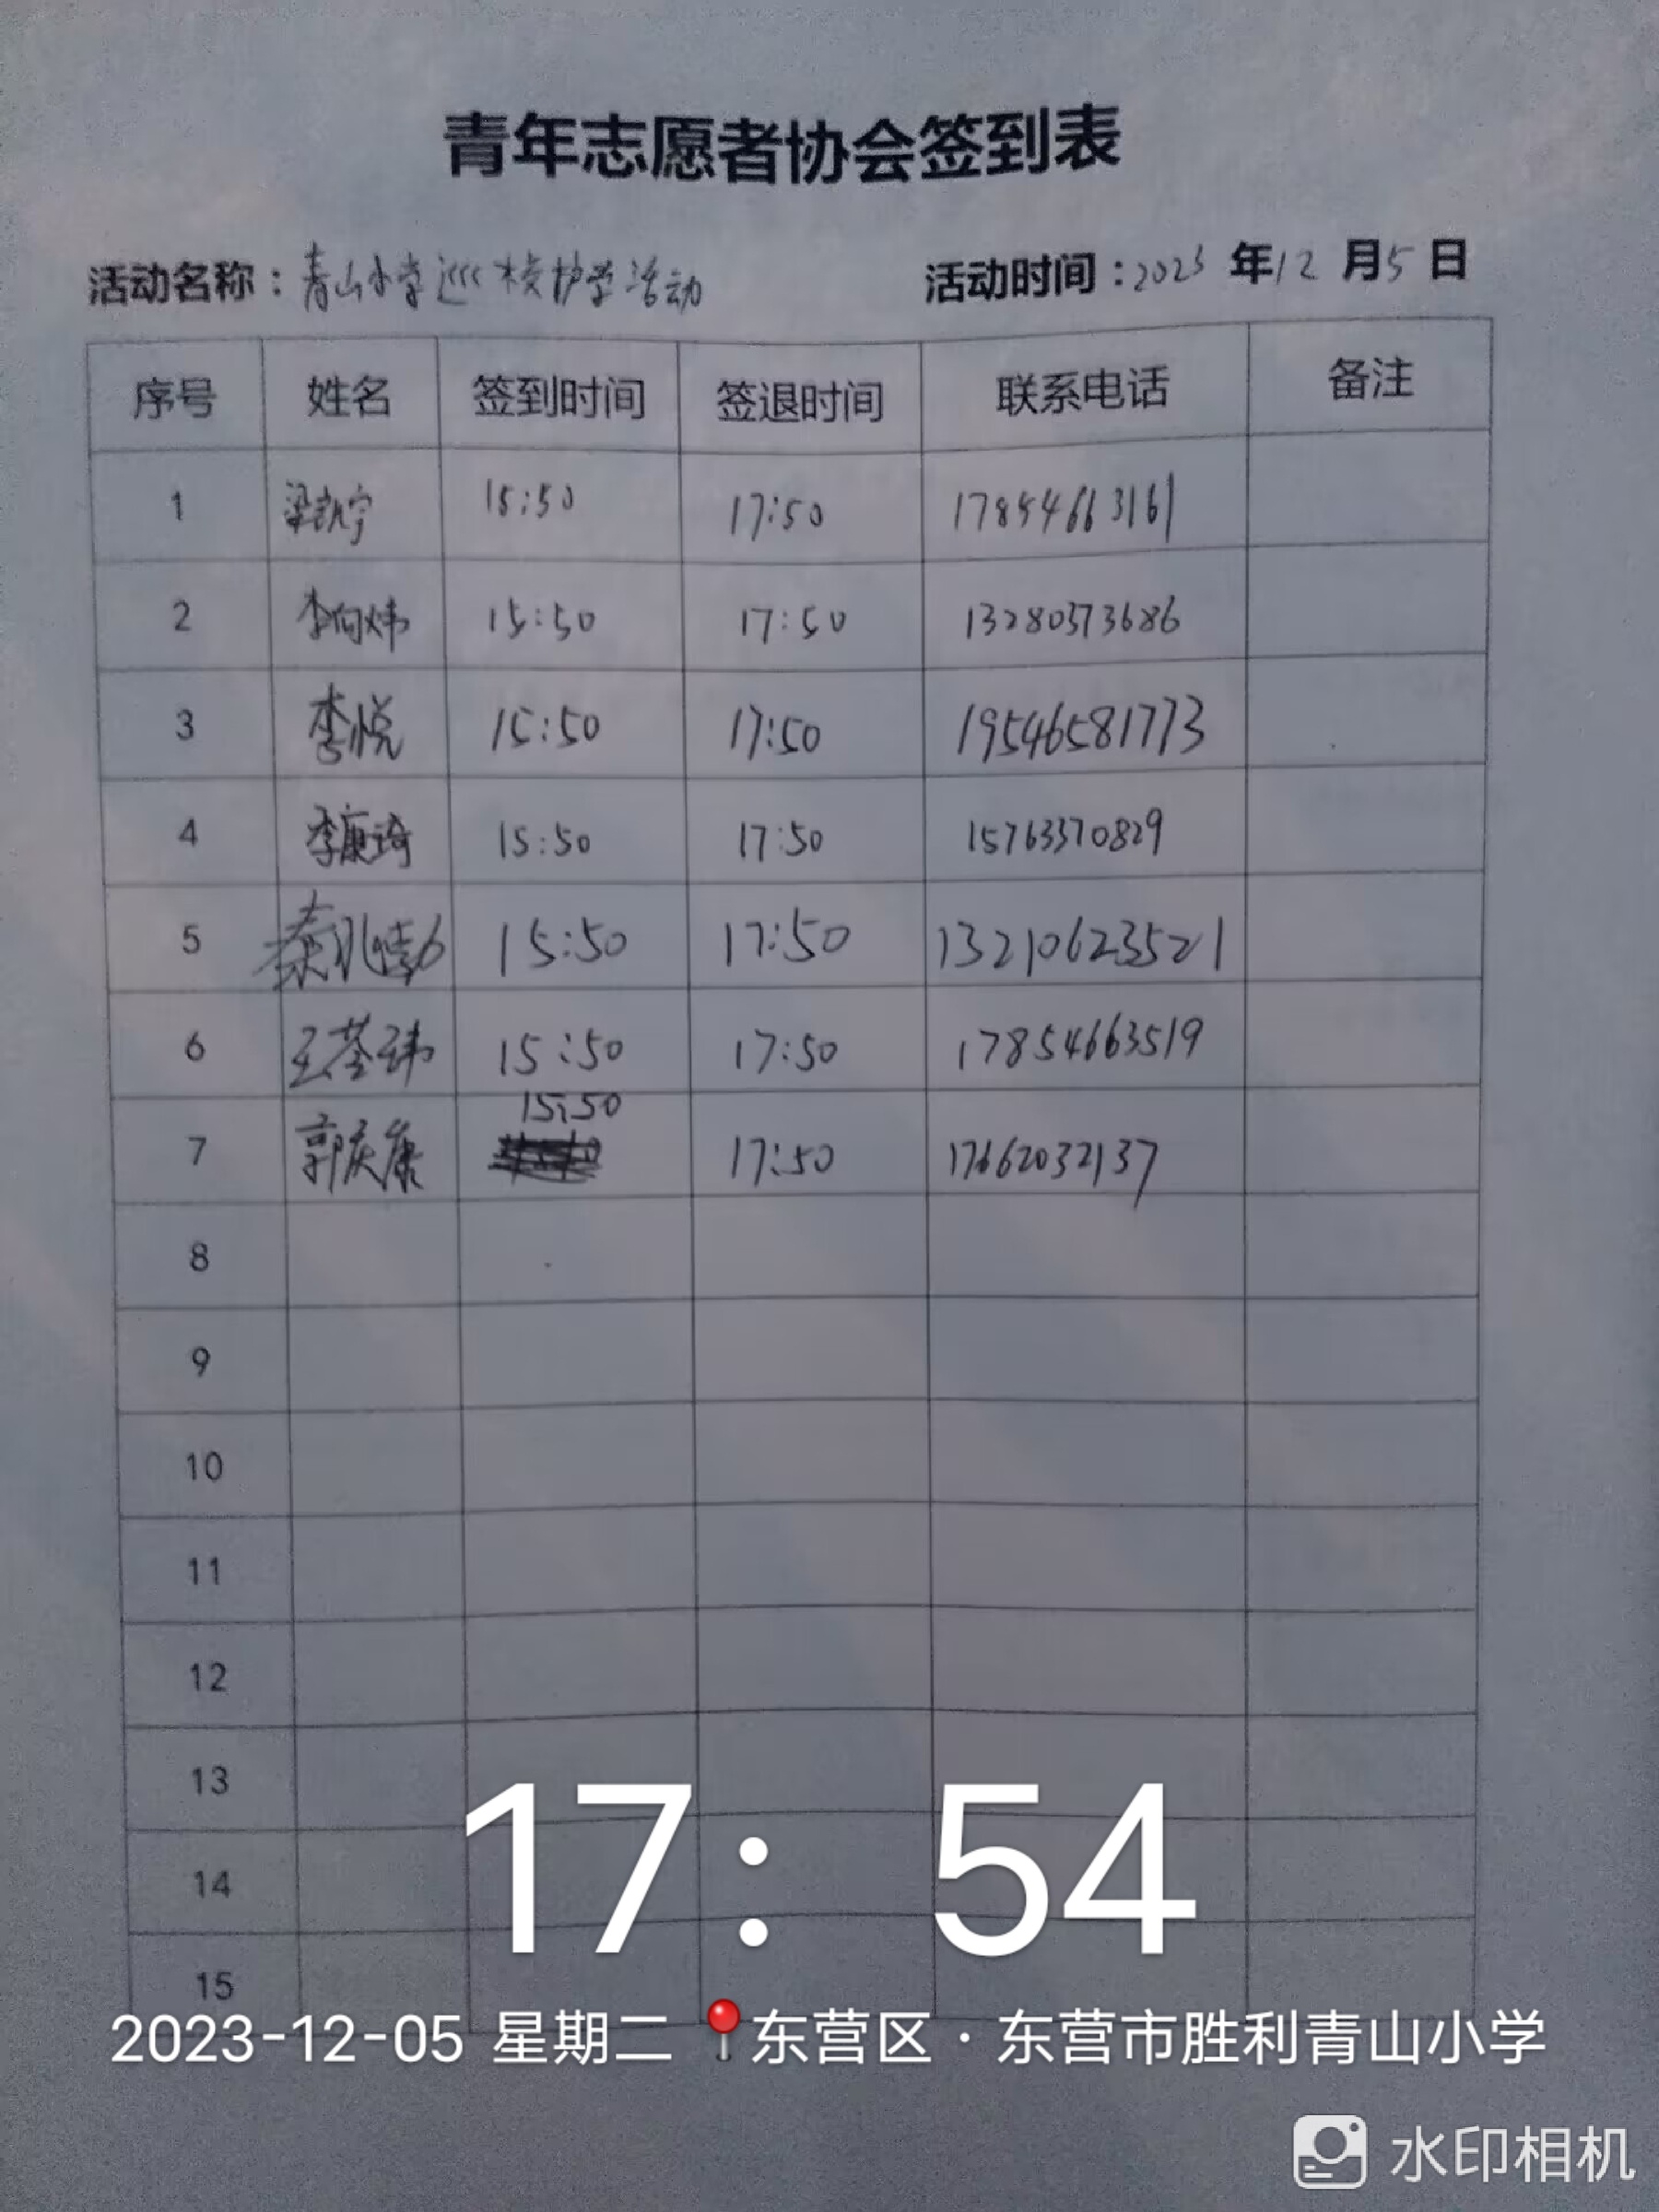 青年志愿者协会签到表
活动名称：青山小学巡校护学活动 活动时间：2023年12月5日
序号 姓名 签到时间 签退时间 联系电话 备注
1 梁凯宁 15:50 17:50 17854663161
2 李向炜 15:50 17:50 13280373686
3 李悦 15:50 17:50 19546581773
4 李康琦 15:50 17:50 15763370829
5 15:50 17:50 13210623521
6 王荃玮 15:50 17:50 17854663519
7 郭庆康 15:50 17:50 17662032137
8
9
10
11
12
13
14
15
17: 54
2023-12-05 星期二 东营区·东营市胜利青山小学
水印相机